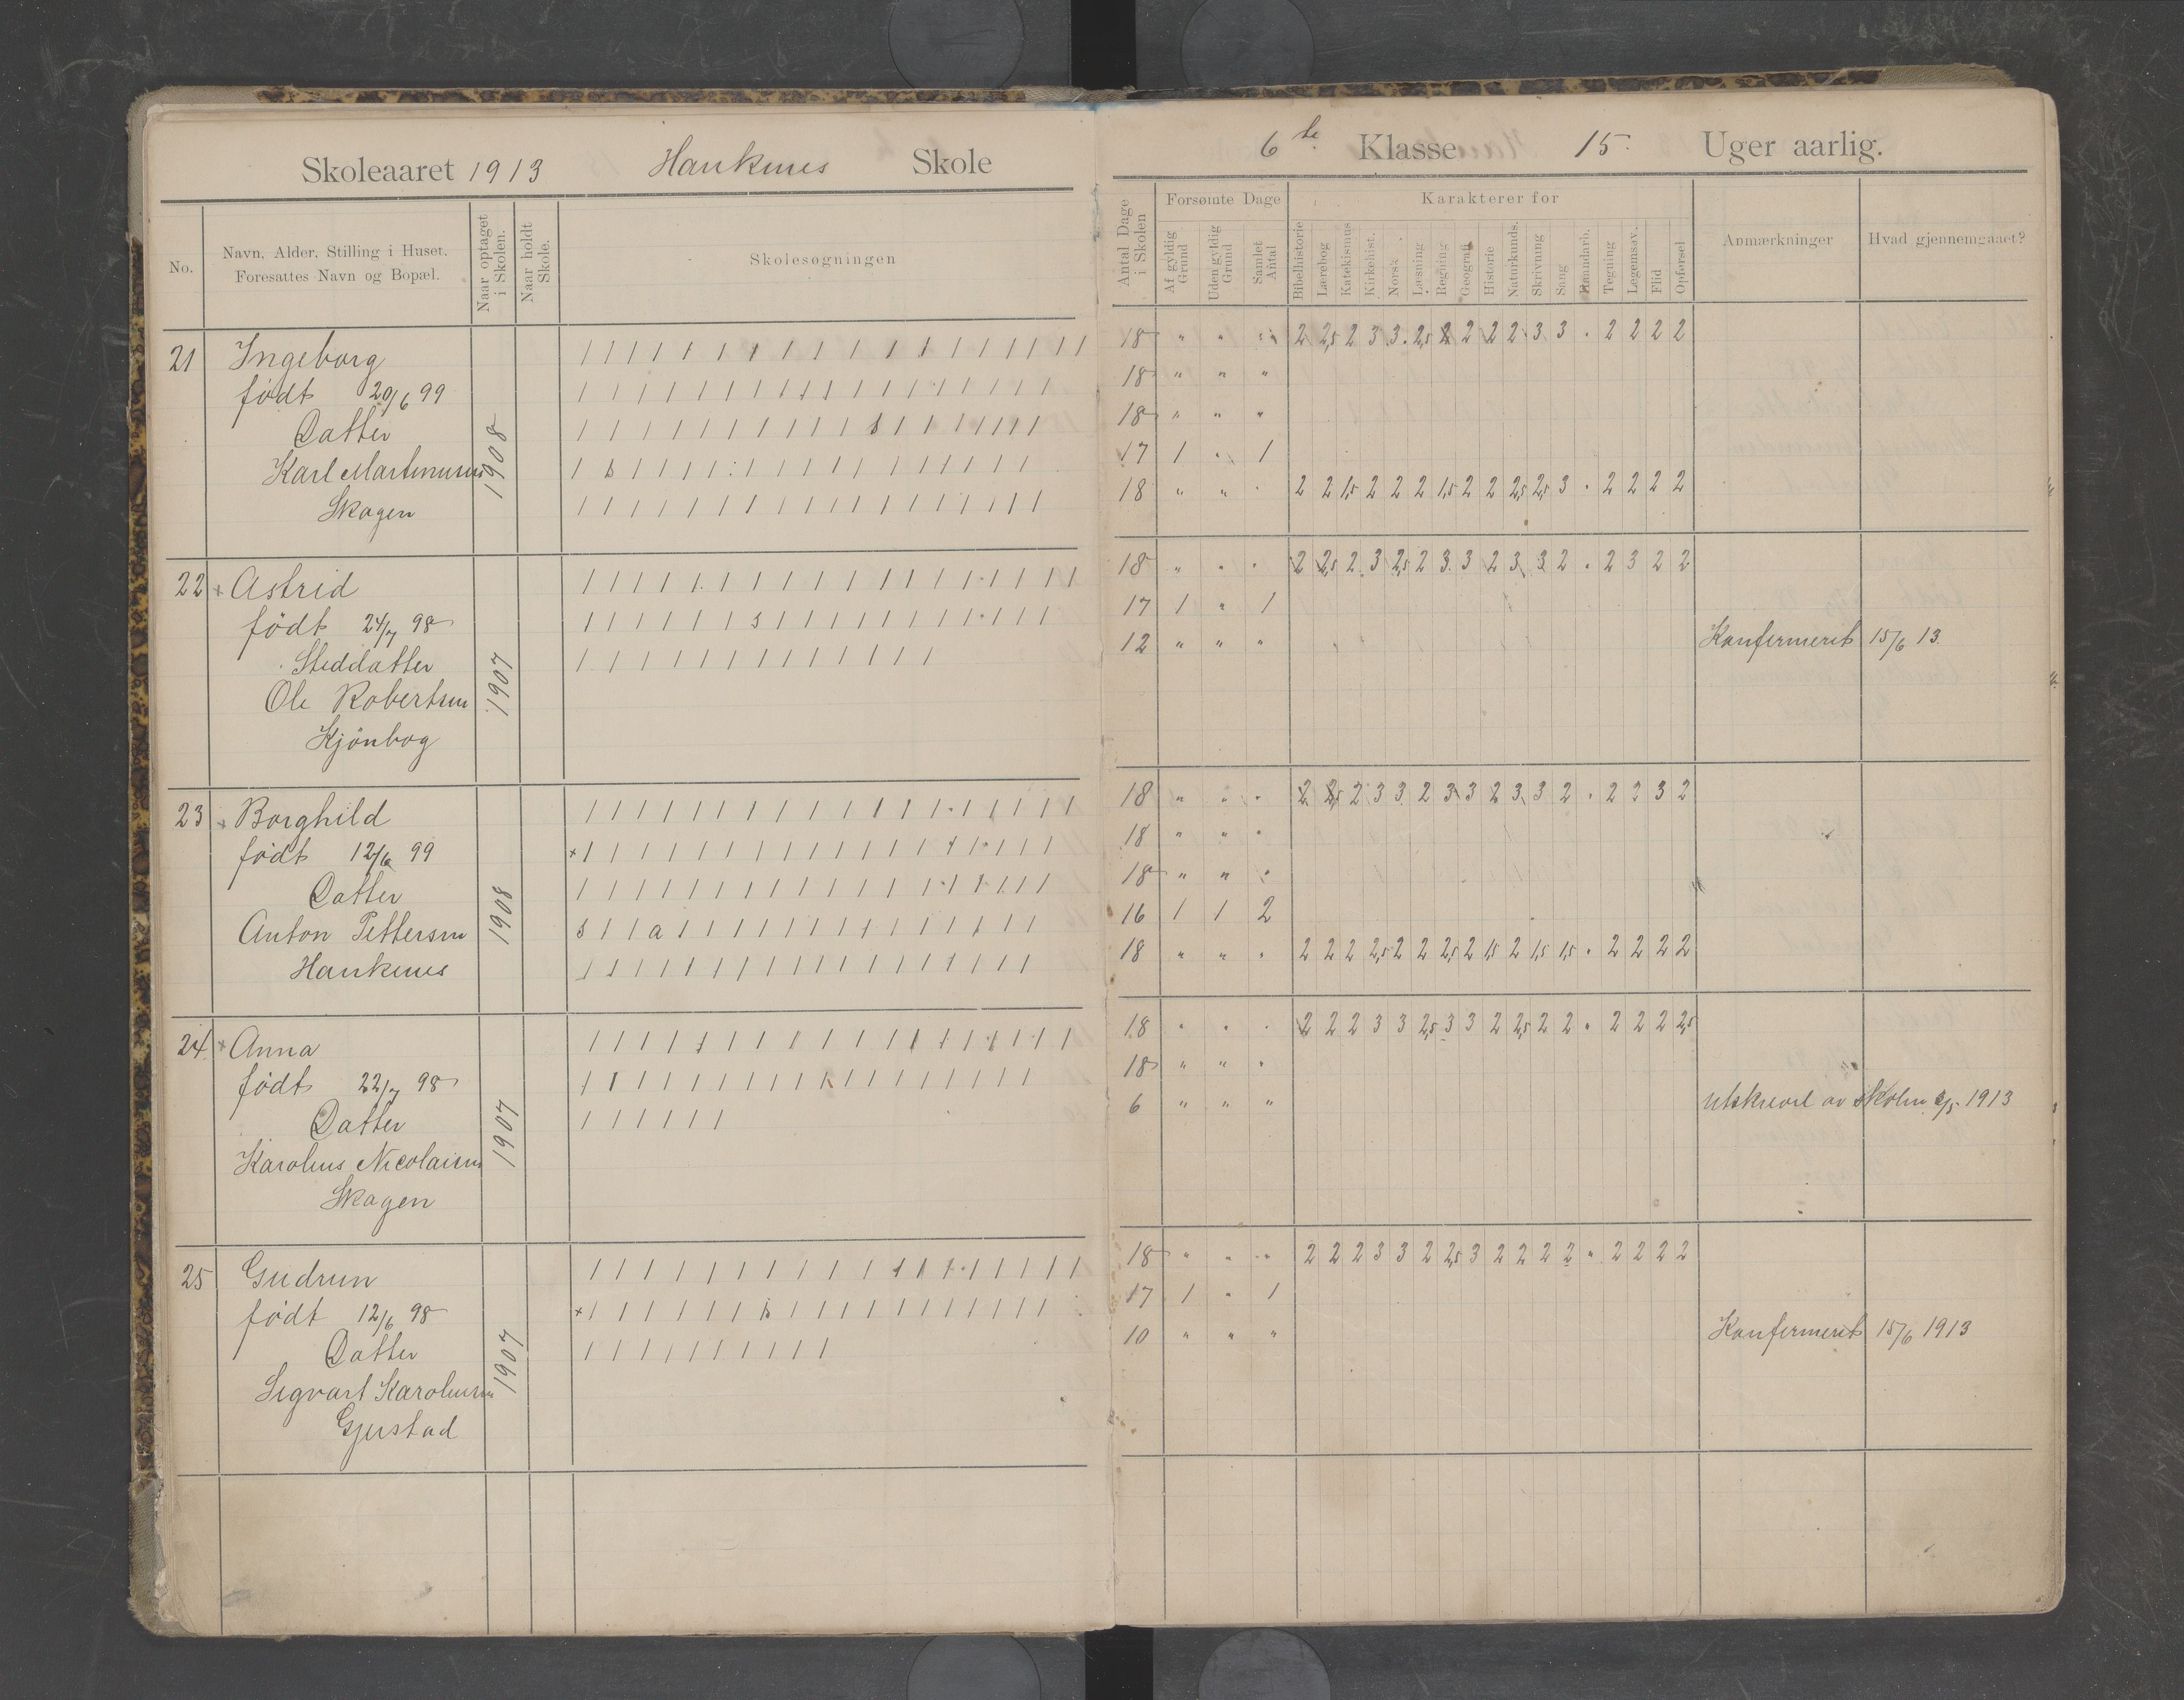 Skoleaaret 1913 Hankenes Skole
No.
Navn, Alder, Stilling i Huset,
Foresattes Navn og Bopæl.
Naar optaget
i Skolen.
Naar holdt
Skole.
Skolesøgningen
21 Ingeborg
født 20/6 99
Datter
Karl Martinusen
Skagen
1908
22 + Astrid
født 24/7 98
Steddatter
Ole Robertsen
Kjönbog
1907
23 + Borghild
født 12/6 99
Datter
Anton Pettersen
Hankenes
1908
24 + Anna
født 22/7 98
Datter
Karolius Nicolaisen
Skagen
1907
25 Gudrun
født 12/6 98
Datter
Sigvart Karoliusen
Gjerstad
1907
6te Klasse 15 Uger aarlig.
Antal Dage
i Skolen
Forsømte Dage
Af gyldig
Grund
Uden gyldig
Grund
Samlet
Antal
Karakterer for
Bibelhistorie
Lærebog
Katekismus
Kirkehist.
Norsk
Læsning
Regning
Geografi
Historie
Naturkunds.
Skrivning
Sang
Haandarb.
Tegning
Legemsøv.
Flid
Opførsel
Anmærkninger
Hvad gjennemgaaet?
18 " " " 2 2,5 2 3 3 2,5 2 2 2 2 3 3 " 2 2 2 2
18 " " "
18 " " "
17 1 " 1
18 " " " 2 2 1,5 2 2 2 1,5 2 2 2,5 2,5 3 " 2 2 2 2
18 " " " 2 2,5 2 3 2,5 2 3 3 2 3 3 2 " 2 3 2 2
17 1 " 1
12 " " " Konfermert 15/6 13.
18 " " " 2 2,5 2 3 3 2 3 3 2 3 3 2 " 2 2 3 2
18 " " "
18 " " "
16 1 1 2
18 " " " 2 2 2 2,5 2 2 2,5 2 1,5 2 1,5 1,5 " 2 2 2 2
18 " " " 2 2 2 3 3 2,5 3 3 2 2,5 2 2 " 2 2 2 2,5
18 " " "
6 " " " Utskrevet av skolen 1913
18 " " " 2 2 2 3 3 2 2,5 3 2 2 2 2 " 2 2 2 2
17 1 " 1
10 " " " Konfermert 15/6 1913